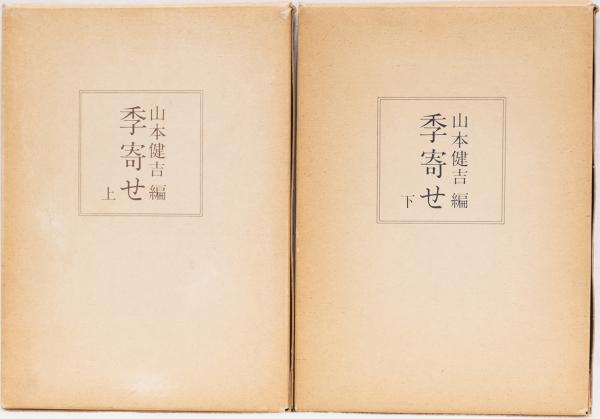 山本健吉 編
季寄せ
上
山本健吉 編
季寄せ
下